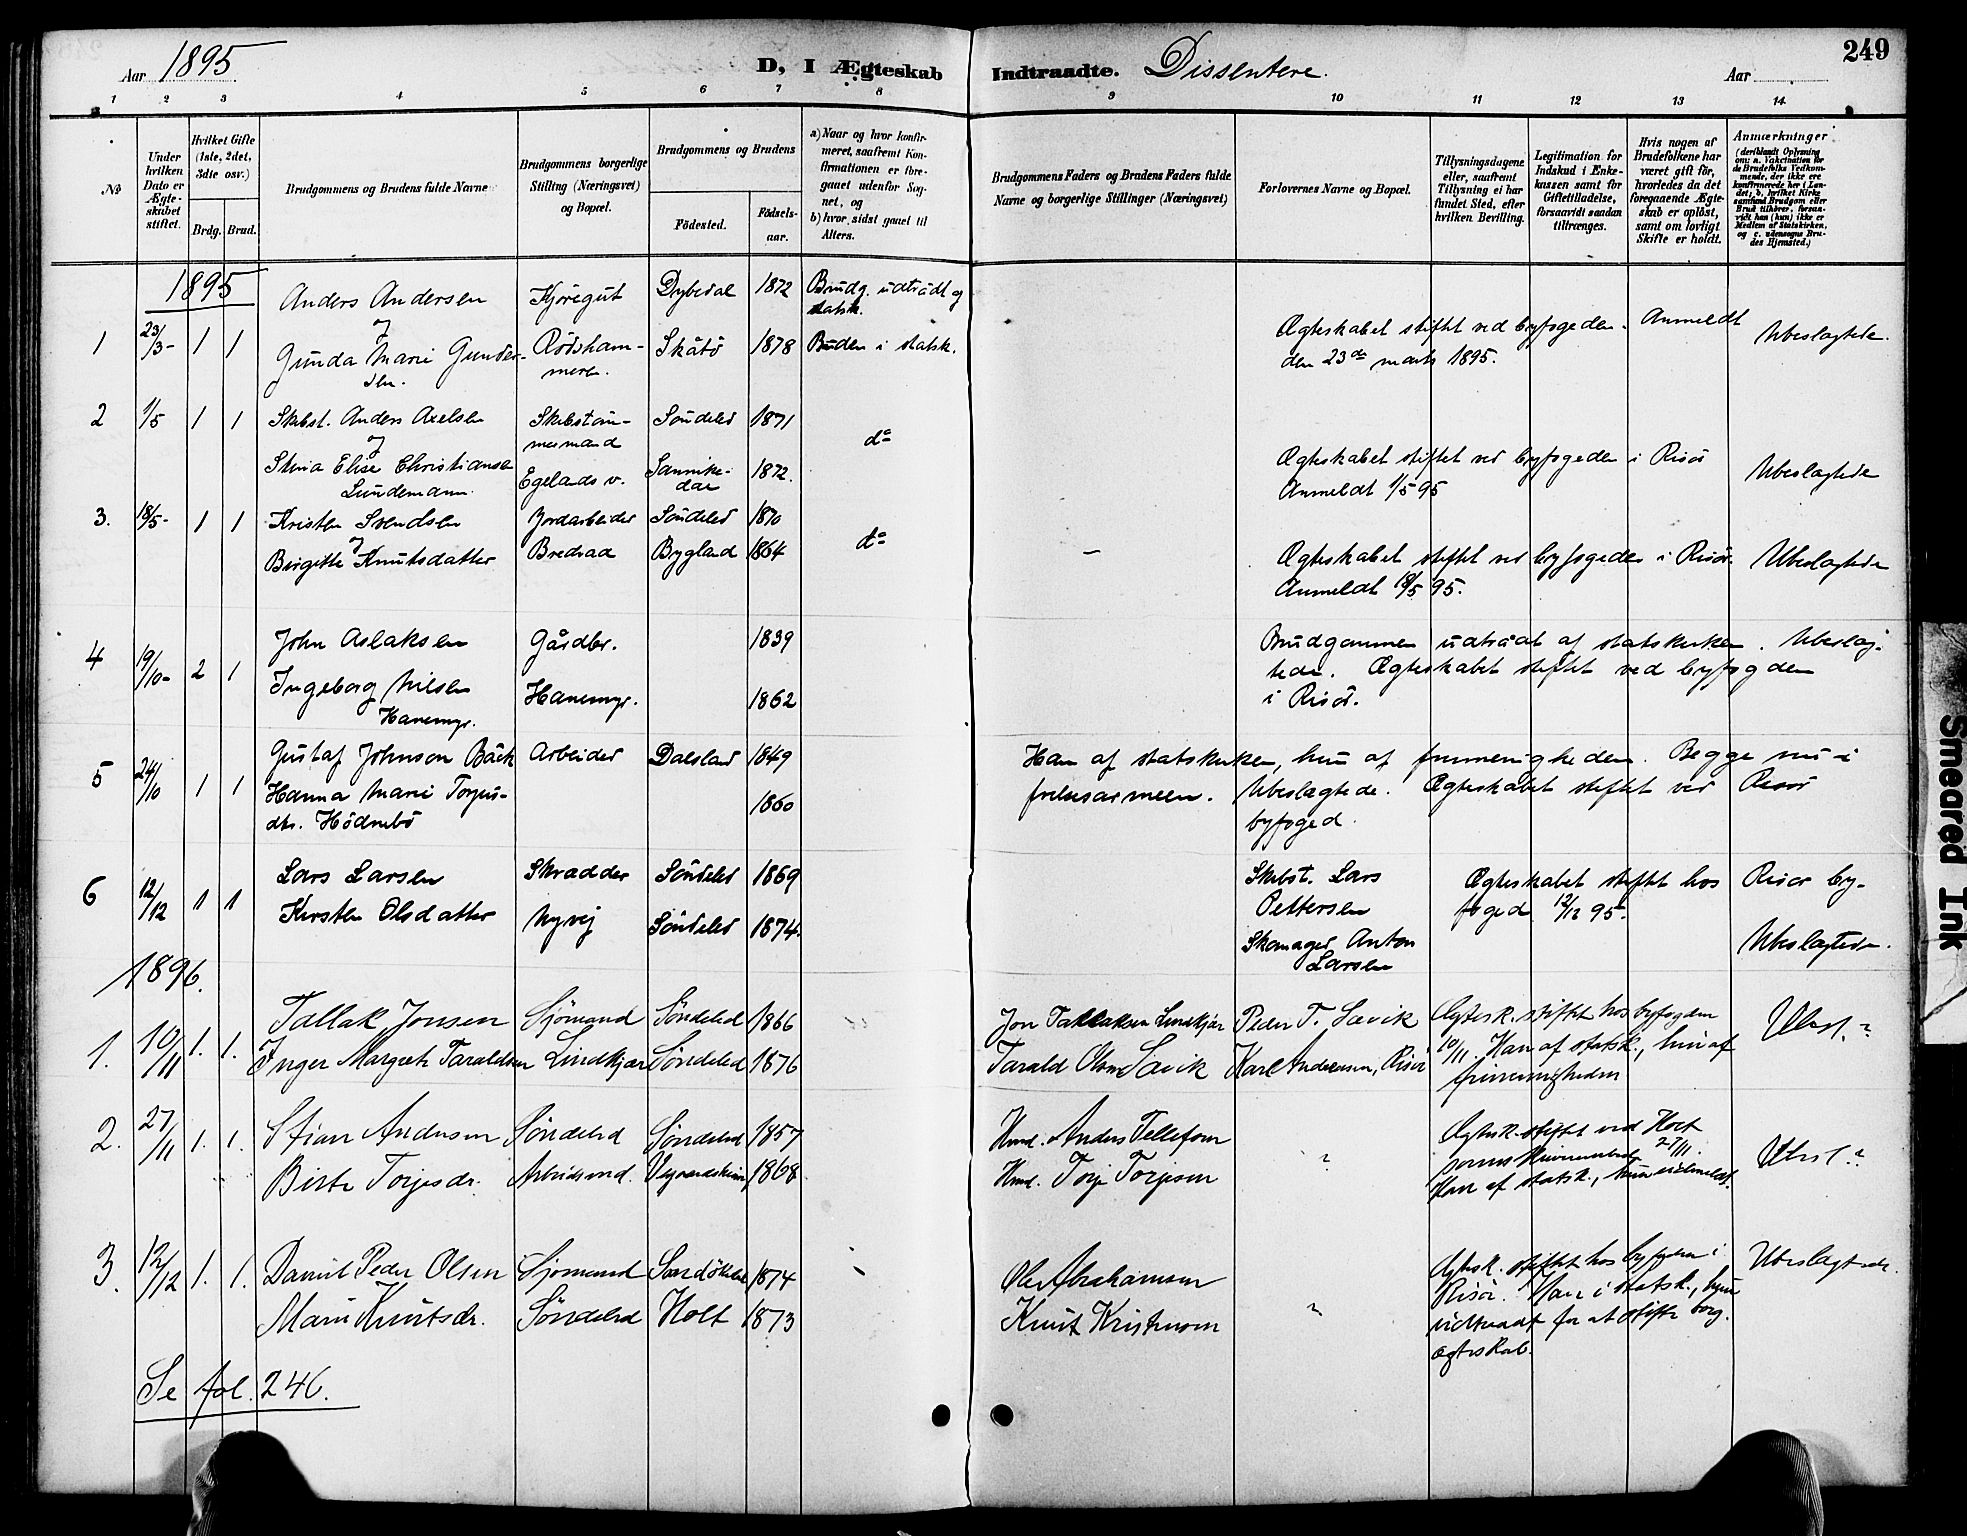 249
Aar 1895
D, I Ægteskab Indtraadte. Dissentere.
Aar
1 2 3 4 5 6 7 8 9 10 11 12 13 14.
No
Under hvilken Dato er Ægteskabet stiftet.
Hvilket Gifte (1ste, 2det, 3die osv.)
Brdg. Brud.
Brudgommens og Brudens fulde Navne
Brudgommens borgerlige Stilling (Næringsvei) og Bopæl.
Brudgommens og Brudens
Födested.
Födselsaar.
a) Naar og hvor konfirmeret, saafremt Konfirmationen er foregaaet udenfor Sognet, og
b) hvor, sidst gaaet til Alters.
Brudgommens Faders og Brudens Faders fulde Navne og borgerlige Stillinger (Næringsvei)
Forlovernes Navne og Bopæl.
Tillysningsdagene eller, saafremt Tillysning ei har fundet Sted, efter hvilken Bevilling.
Legitimation for Indskud i Enkekassen samt for Giftetilladelse, forsaavidt saadan tiltrænges.
Hvis nogen af Brudefolkene har været gift før, hvorledes da det foregaaende Ægteskab er opløst, samt om lovligt Skifte er holdt.
Anmærkninger
(deriblandt Oplysning om: a. Vakcination for de Brudefolks Vedkommende, der ikke ere konfirmerede her i Landet; b. hvilket Kirkesamfund Brudgom eller Brud tilhører, forsaavidt han (hun) ikke er Medlem af Statskirken, og c. udensogns Brudes Hjemsted.)
1895
Anders Andersen Kjøregut Dybedal 1872 Brudg. udtrådt og statsk.
og
1 23/3- 1 1 Gunda Marie Gundersen. Rødshammeren. Skåtø 1878 Bruden i statsk.
Ægteskabet stiftet ved byfogeden. Anmeldt
den 23de marts 1895. Ubeslægtede.
2 1/5 1 1 Skibst. Anders Axelsen Skibstømmermand Søndeled 1871
og do
Stina Elise Christiansen Lundemann. Egelands v. Sannikedal 1872.
Ægteskabet stiftet ved byfogeden i Risør
Anmeldt 1/5 95 Ubeslægtede
3. 18/5- 1 1 Kristen Svendsen Jordarbeider Søndeled 1870
og do
Birgitte Knutsdatter Bredvad Bygland 1864 —
Ægteskabet stiftet ved byfogeden i Risør.
Anmeldt 18/5 95. Ubeslægtede
4 19/10- 2 1 John Aslaksen Gårdbr. 1839
Ingeborg Nilsen Hanemyr. Hanemyr. 1862
Brudgommen udtrådt af statskirken. Ubeslægtede.
Ægteskabet stiftet ved byfogden
i Risør.
5 24/10 1 1 Gustaf Johnson Bäck Arbeider Dalsland 1849
Hanna Marie Torjusdtr. Hødnebø 1860
Han af statskirken, hun af frimenigheden. Begge nu i
frelsesarmeen. Ubeslægtede. Ægteskabet stiftet ved Risør
byfoged.
6 12/12 1 1 Lars Larsen Skrædder Søndeled 1869
Kirsten Olsdatter Nyvej Søndeled 1874.
Skibst. Lars Pettersen
Skomager Anton Larsen
Ægteskabet stiftet hos Risør byfoged 12/12 95.
Ubeslægtede.
1896.
1. 10/11 1. 1. Tallak Jonsen Sjømand Søndeled 1866
Inger Margreth Taraldsen Lindkjær Søndeled 1876
Jon Tallaksen Lindkjær Peder T. Savik
Tarald Olsen Savik Karl Andersen, Risør
Ægtesk. stiftet hos byfogden
10/11. Han af statsk., hun af
frimenigheden
Ubesl. ?
2. 27/11 1. 1. Stian Andersen Søndeled Søndeled 1857
Birte Torjesdr. Arbeidsmd. 1868
Hmd. Anders Tellefsen
Hmd. Torje Torjesen ?
Ægtesk. stiftet ved Holt
27/11.
Han af statsk., hun udmeldt.
Ubesl. ?
3. 12/12 1. 1. Daniel Peder Olsen Sjømand Sandøkedal 1874
Marie Knutsdr. Søndeled Holt 1873
Ole Abrahamsen
Knut Kristensen ?
Ægtesk. stiftet hos byfogden i
Risør. Han i statsk., hun
udtraadt for at stifte borg.
ægteskab.
Ubeslægtede.
Se fol. 246.
Smeared Ink